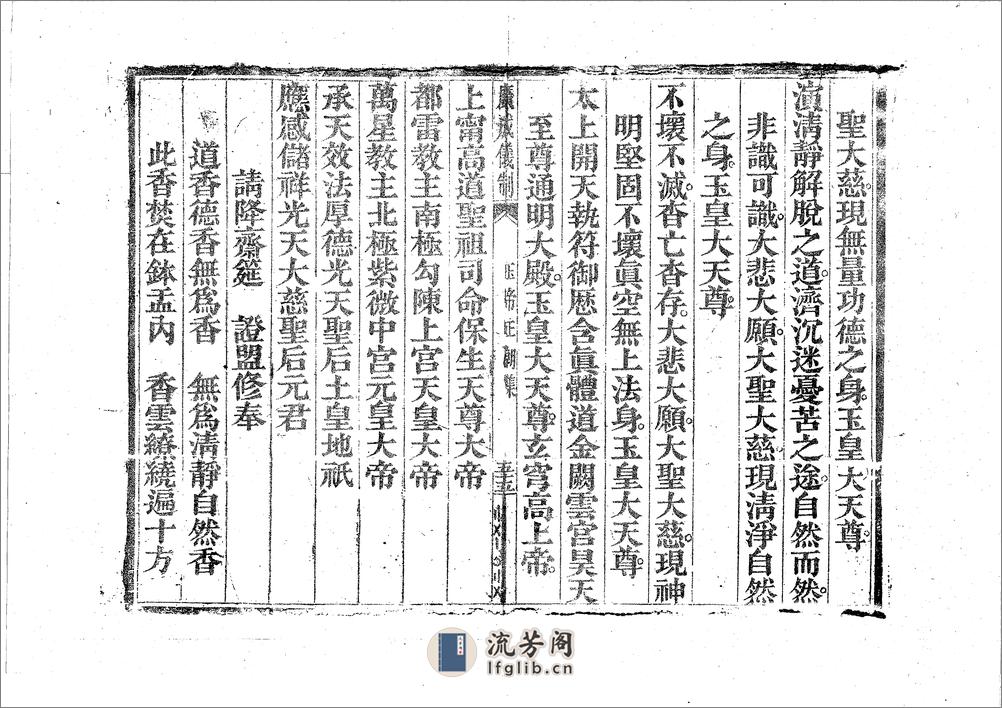 聖大慈現無量功德之身。玉皇大天尊。
演淸靜解脫之道。濟沉迷憂苦之途。自然而然。
非識可識。大悲大願。大聖大慈。現淸淨自然
之身。玉皇大天尊
不壞不滅。杳亡杳存。大悲大願。大聖大慈。現神
明堅固不壞眞空無上法身。玉皇大天尊。
太上開天執符御歴含眞體道金闕雲宮昊天
至尊通明大殿。玉皇大天尊。玄穹高上帝。
廣成儀制
朝集
上甯高道聖祖司命保生天尊大帝
都雷教主南極勾陳上宮天皇大帝
萬星教主北極紫微中宮元皇大帝
承天效法厚德光天聖后土皇地祇
應感儲祥光天大慈聖后元君
請降齋筵 證盟修奉
道香德香無爲香 無爲淸靜自然香
此香焚在鉢盂內 香雲繚繞遍十方
流芳阁
lfglib.cn